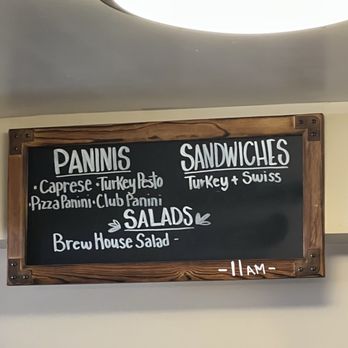 PANINIS
• Caprese • Turkey Pesto
• Pizza Panini • Club Panini
SANDWICHES
Turkey + Swiss
SALADS
Brew House Salad -
- 11AM -